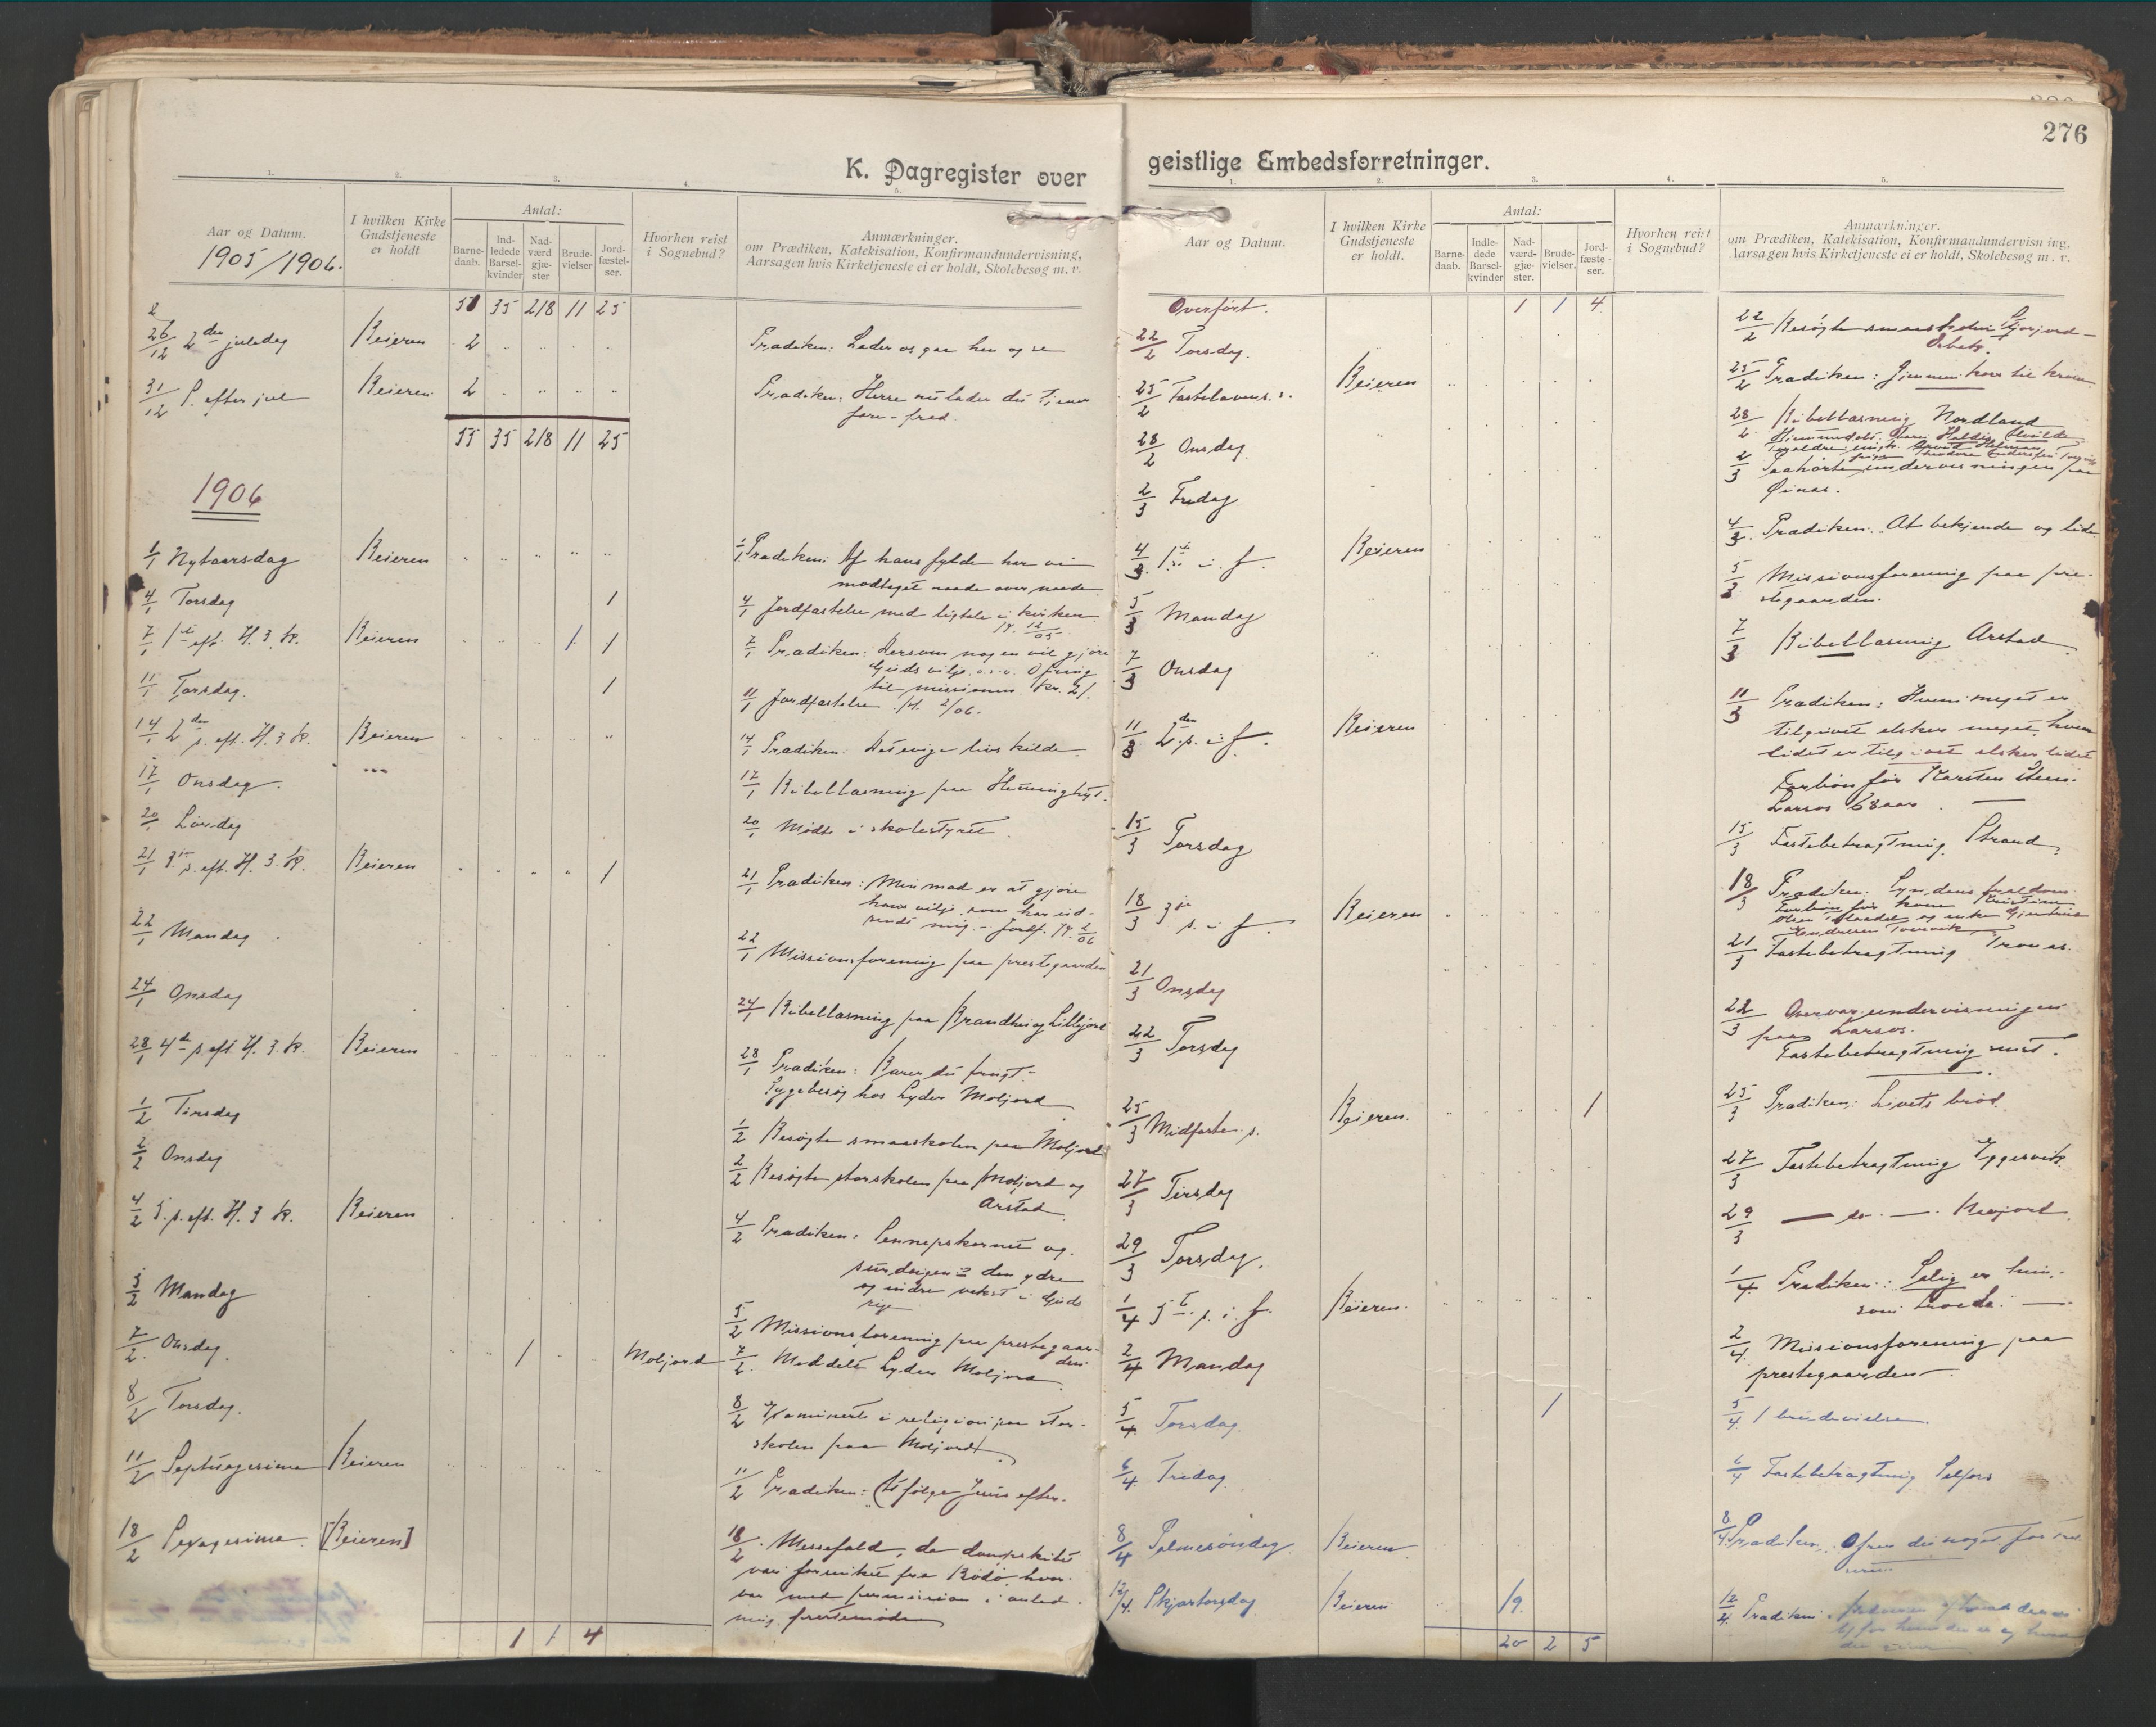 276
K. Dagregister over
geistlige Embedsforretninger.
1. 2. 3. 4. 5.
Aar og Datum.
1905/1906.
I hvilken Kirke
Gudstjeneste
er holdt
Antal:
Barne-
daab.
Ind-
ledede
Barsel-
kvinder
Nad-
værd
gjæ-
ster
Brude-
vielser
Jord-
fæstel-
ser.
Hvorhen reist
i Sognebud?
Anmærkninger.
om Prædiken, Katekisation, Konfirmandundervisning,
Aarsagen hvis Kirketjeneste ei er holdt, Skolebesøg m. v.
51 35 218 11 25
26/12 2den juledag Beieren 2 Prædiken: Lader os gaa hen og se
31/12 S. efter jul Beieren 2 Prædiken: Herre nu lader du tjener
fare - fred
55 35 218 11 25
1906
1/1 Nytaarsdag Beieren 1/1 Prædiken: Af hans fylde har vi
modtaget naade over naade
4/1 Torsdag 1 4/1 Jordfæstelse med ligtale i kirken
12/05
7/1 1ste eft. H. 3 K. Beieren 1 1 7/1 Prædiken: Dersom nogen vil gjøre
Guds vilje o.s.v. Ofring
til missionen kr. 21.
11/1 Torsdag. 1 11/1 Jordfæstelse 2/06.
14/1 2den s. eft. H. 3 K. Beieren 14/1 Prædiken: Det evige livs kilde.
17/1 Onsdag. 17/1 Bibellæsning paa
20/1 Lørdag 20/1 Møde i skolestyret
21/1 3die s. eft. H. 3. K. Beieren 1 21/1 Prædiken: Min mad er at gjøre
hans vilje, som har ud-
sendt mig. - Jordf. 2/06
22/1 Mandag 22/1 Missionsforening paa prestegaarden
24/1 Onsdag 24/1 Bibellæsning paa
28/1 4de s. eft. H. 3. K. Beieren 28/1 Prædiken: Bærer du frugt -
Sygebesøg hos Lyder Moljord
1/2 Torsdag 1/2 Besøgte smaaskolen paa Moljord
2/2 Onsdag 2/2 Besøgte storskolen paa Moljord og
Arstad.
4/2 5. s. eft. H. 3 K. Beieren 4/2 Prædiken: Sennepskornet og
surdeigen den ydre
og indre vekst i Guds
rige
5/2 Mandag 5/2 Missionsforening paa prestegaar-
den
7/2 Onsdag. 1 Moljord 7/2 Meddelt Lyder Moljord
8/2 Torsdag. 8/2 Examinerte i religion paa stor-
skolen paa Moljord
11/2 Septuagesima Beieren 11/2 Prædiken: At følge Jesus efter.
18/2 Sexagesima. [Beieren] 18/2 Messefald, da dampskibet
var forsinket fra Bodø, hvor
var med permission i anled-
ning prestemøde
1 1 4
1. 2. 3. 4. 5.
Aar og Datum.
I hvilken Kirke
Gudstjeneste
er holdt.
Antal:
Barne-
daab.
Indle-
dede
Barsel-
kvinder
Nad-
værd-
gjæ-
ster.
Brude-
vielser.
Jord-
fæste-
ser.
Hvorhen reist
i Sognebud?
Anmærkninger.
om Prædiken, Katekisation, Konfirmandundervisning,
Aarsagen hvis Kirketjeneste ei er holdt, Skolebesøg m. v.
Overført. 1 1 4
22/2 Torsdag. 22/2 Besøgte smaaskolen
25/2 Fastelavens s. Beieren 25/2 Prædiken: Gjennem kors til krone.
28/2 Onsdag 28/2 Bibellæsning Nordland
2/3 Fredag 2/3 Paahørte undervisningen paa
Øinas.
4/3 1ste s. i f. Beieren 4/3 Prædiken: At bekjende og lide
5/3 Mandag 5/3 Missionsforening paa pre-
stegaarden.
7/3 Onsdag 7/3 Bibellæsning Arstad
11/3 2den s. i f. Beieren 11/3 Prædiken: Hvem meget er
tilgivet elsker meget, hvem
lidet er tilgivet elsker lidet
Forbøn for Karsten
Larsos 68 aar.
15/3 Torsdag 15/3 Fastebetragtning Strand
18/3 3die s. i f. Beieren 18/3 Prædiken: Syndens trældom
Forbøn for kone Kristine
21/3 Onsdag 21/3 Fastebetragtning
22/3 Torsdag 22/3 Overvar undervisningen
paa Larsos.
Fastebetragtning smst.
25/3 Midfaste s. Beieren. 1 25/3 Prædiken: Livets brød
27/3 Tirsdag 27/3 Fastebetragtning
29/3 Torsdag. 29/3 — do. —
1/4 5te s. i. f. Beieren. 1/4 Prædiken: Salig er hun,
som troede. —
2/4 Mandag 2/4 Missionsforening paa
prestegaarden
5/4 Torsdag. 1 5/4 1 brudevielse.
6/4 Fredag 6/4 Fastebetragtning Selfors
8/4 Palmesøndag. Beieren. 8/4 Prædiken: Ofrer du noget for
12/4 Skjærtorsdag Beieren 19. 12/4 Prædiken:
20 2 5